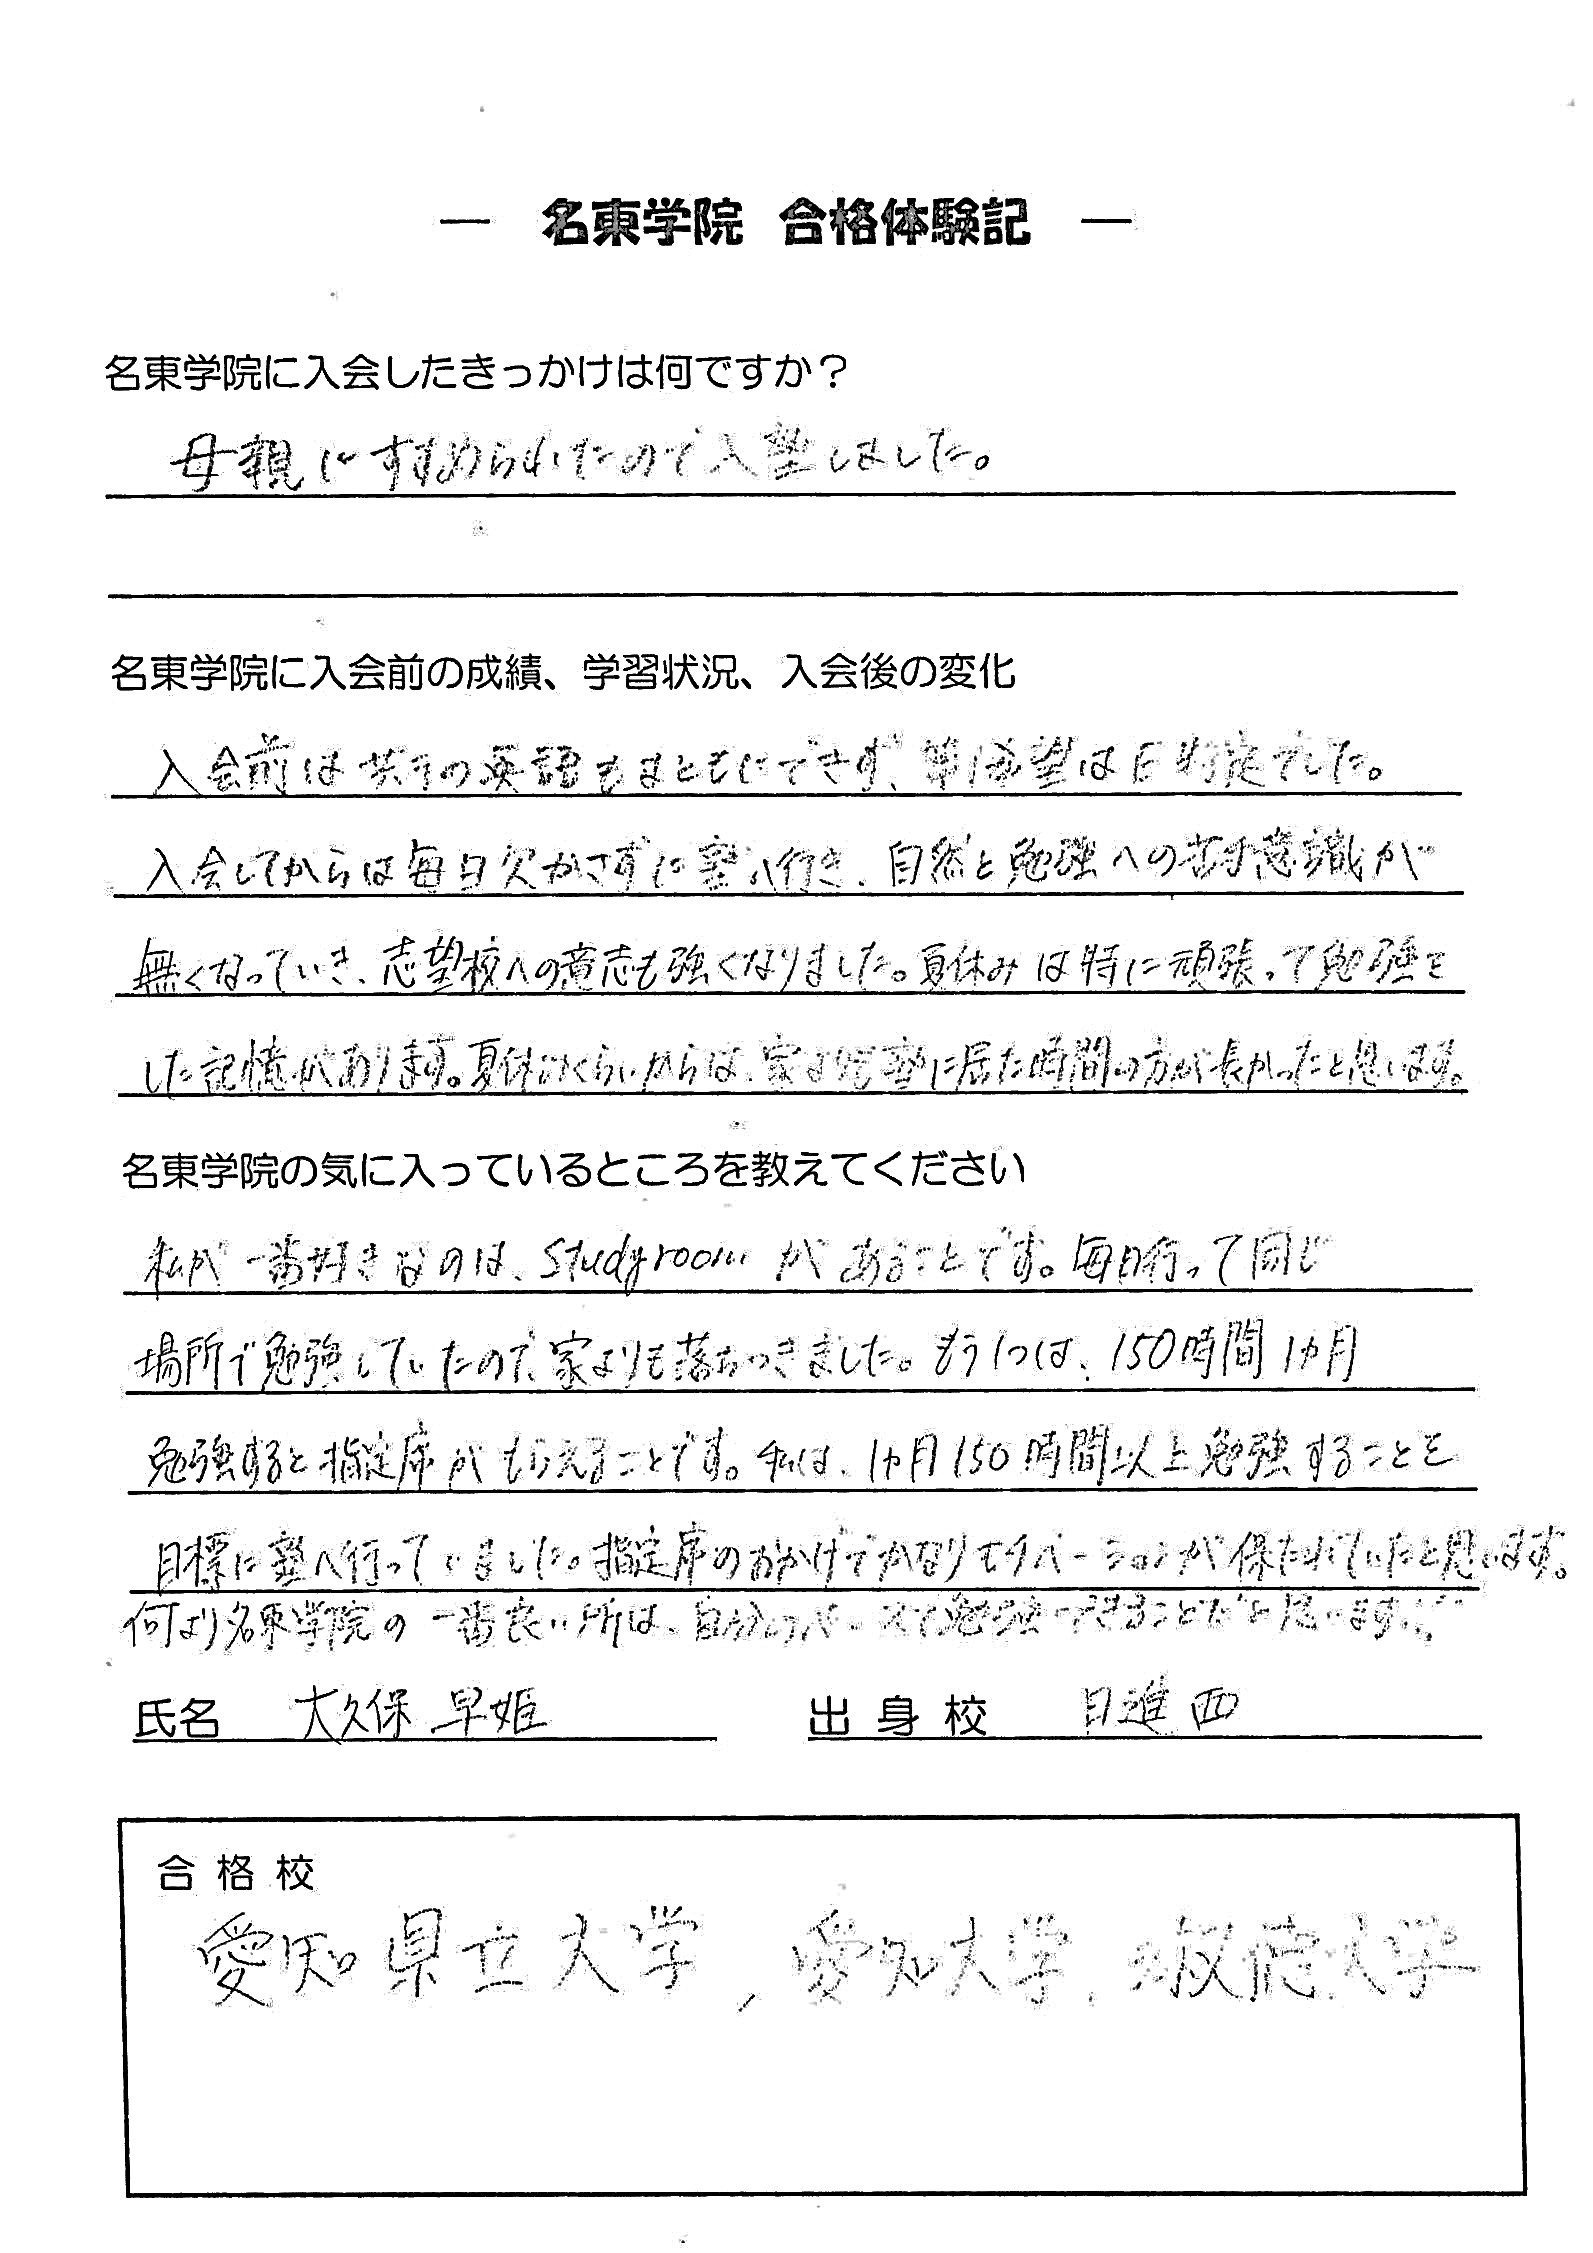 ― 名東学院 合格体験記 ―
名東学院に入会したきっかけは何ですか？
母親にすすめられたので入塾しました。
名東学院に入会前の成績、学習状況、入会後の変化
入会前は共テの英語もまともにできず、第1希望はE判定でした。
入会してからは毎日欠かさずに塾へ行き、自然と勉強への苦手意識が
無くなっていき、志望校への意志も強くなりました。夏休みは特に頑張って勉強を
した記憶があります。夏休みくらいからは、家よりも塾に居た時間の方が長かったと思います。
名東学院の気に入っているところを教えてください
私が一番好きなのは、Studyroomがあることです。毎日行って同じ
場所で勉強していたので、家よりも落ちつきました。もう1つは、150時間1カ月
勉強すると指定席がもらえることです。私は、1カ月150時間以上勉強することを
目標に塾へ行っていました。指定席のおかげでかなりモチベーションが保たれていたと思います。
何より名東学院の一番良い所は、自分のペースで勉強できることだと思います!!
氏名 大久保 早姫 出身校 日進西
合格校
愛知県立大学、愛知大学、淑徳大学